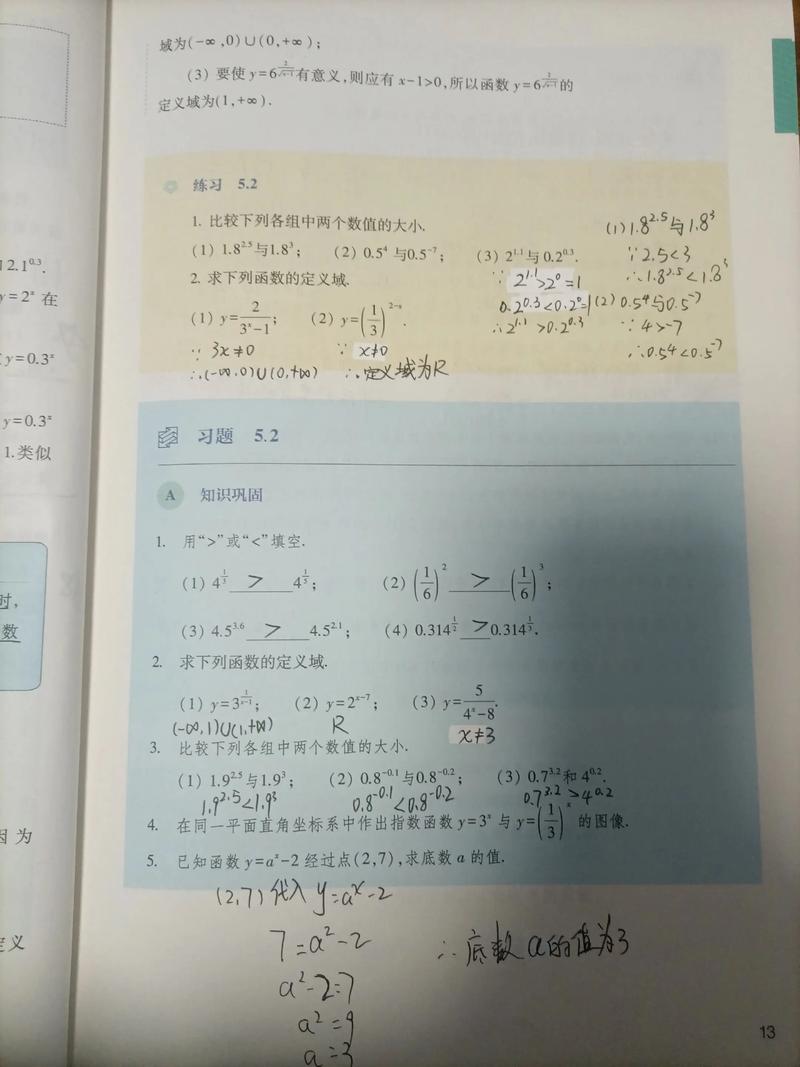 域为(-∞,0)∪(0,+∞);
(3) 要使 y=6^{\frac{2}{\sqrt{x-1}}} 有意义,则应有 x-1>0,所以函数 y=6^{\frac{2}{\sqrt{x-1}}} 的
定义域为(1,+∞).
练习 5.2
1. 比较下列各组中两个数值的大小.
(1) 1.8^{2.5}与1.8^{3}; (2) 0.5^{4} 与0.5^{-7}; (3) 2^{1.1}与 0.2^{0.3}.
∵ 2^{1.1}>2^{0}=1
0.2^{0.3}<0.2^{0}=1
∴2^{1.1}>0.2^{0.3}
(1) 1.8^{2.5}与1.8^{3}
∵2.5<3
∴1.8^{2.5}<1.8^{3}
(2) 0.5^{4}与0.5^{-7}
∵4>-7
∴0.5^{4}<0.5^{-7}
2. 求下列函数的定义域.
(1) y=\frac{2}{3^{x}-1}; (2) y=(\frac{1}{3})^{2-x}.
∵ 3x≠0
∴(-∞,0)∪(0,+∞)
∵ x≠0
∴定义域为R
习题 5.2
A 知识巩固
1. 用“>”或“<”填空.
(1) 4^{\frac{1}{3}} > 4^{\frac{1}{5}}; (2) (\frac{1}{6})^{2} > (\frac{1}{6})^{3};
(3) 4.5^{3.6} > 4.5^{2.1}; (4) 0.314^{\frac{1}{2}} > 0.314^{\frac{1}{3}}.
2. 求下列函数的定义域.
(1) y=3^{\frac{1}{x-1}}; (2) y=2^{x-7}; (3) y=\frac{5}{4^{x}-8}.
(-∞,1)∪(1,+∞) R x≠3
3. 比较下列各组中两个数值的大小.
(1) 1.9^{2.5}与1.9^{3}; (2) 0.8^{-0.1}与0.8^{-0.2}; (3) 0.7^{3.2}和 4^{0.2}.
1.9^{2.5}<1.9^{3} 0.8^{-0.1}<0.8^{-0.2} 0.7^{3.2}>4^{0.2}
4. 在同一平面直角坐标系中作出指数函数 y=3^{x} 与 y=(\frac{1}{3})^{x} 的图像.
5. 已知函数 y=a^{x}-2 经过点(2,7),求底数 a 的值.
(2,7)代入 y=a^{x}-2
7=a^{2}-2
a^{2}-2=7
a^{2}=9
a=3
∴底数a的值为3
13
2.1^{0.3}.
y=2^{x} 在
y=0.3^{x}
y=0.3^{x}
1.类似
时,
数
因为
定义